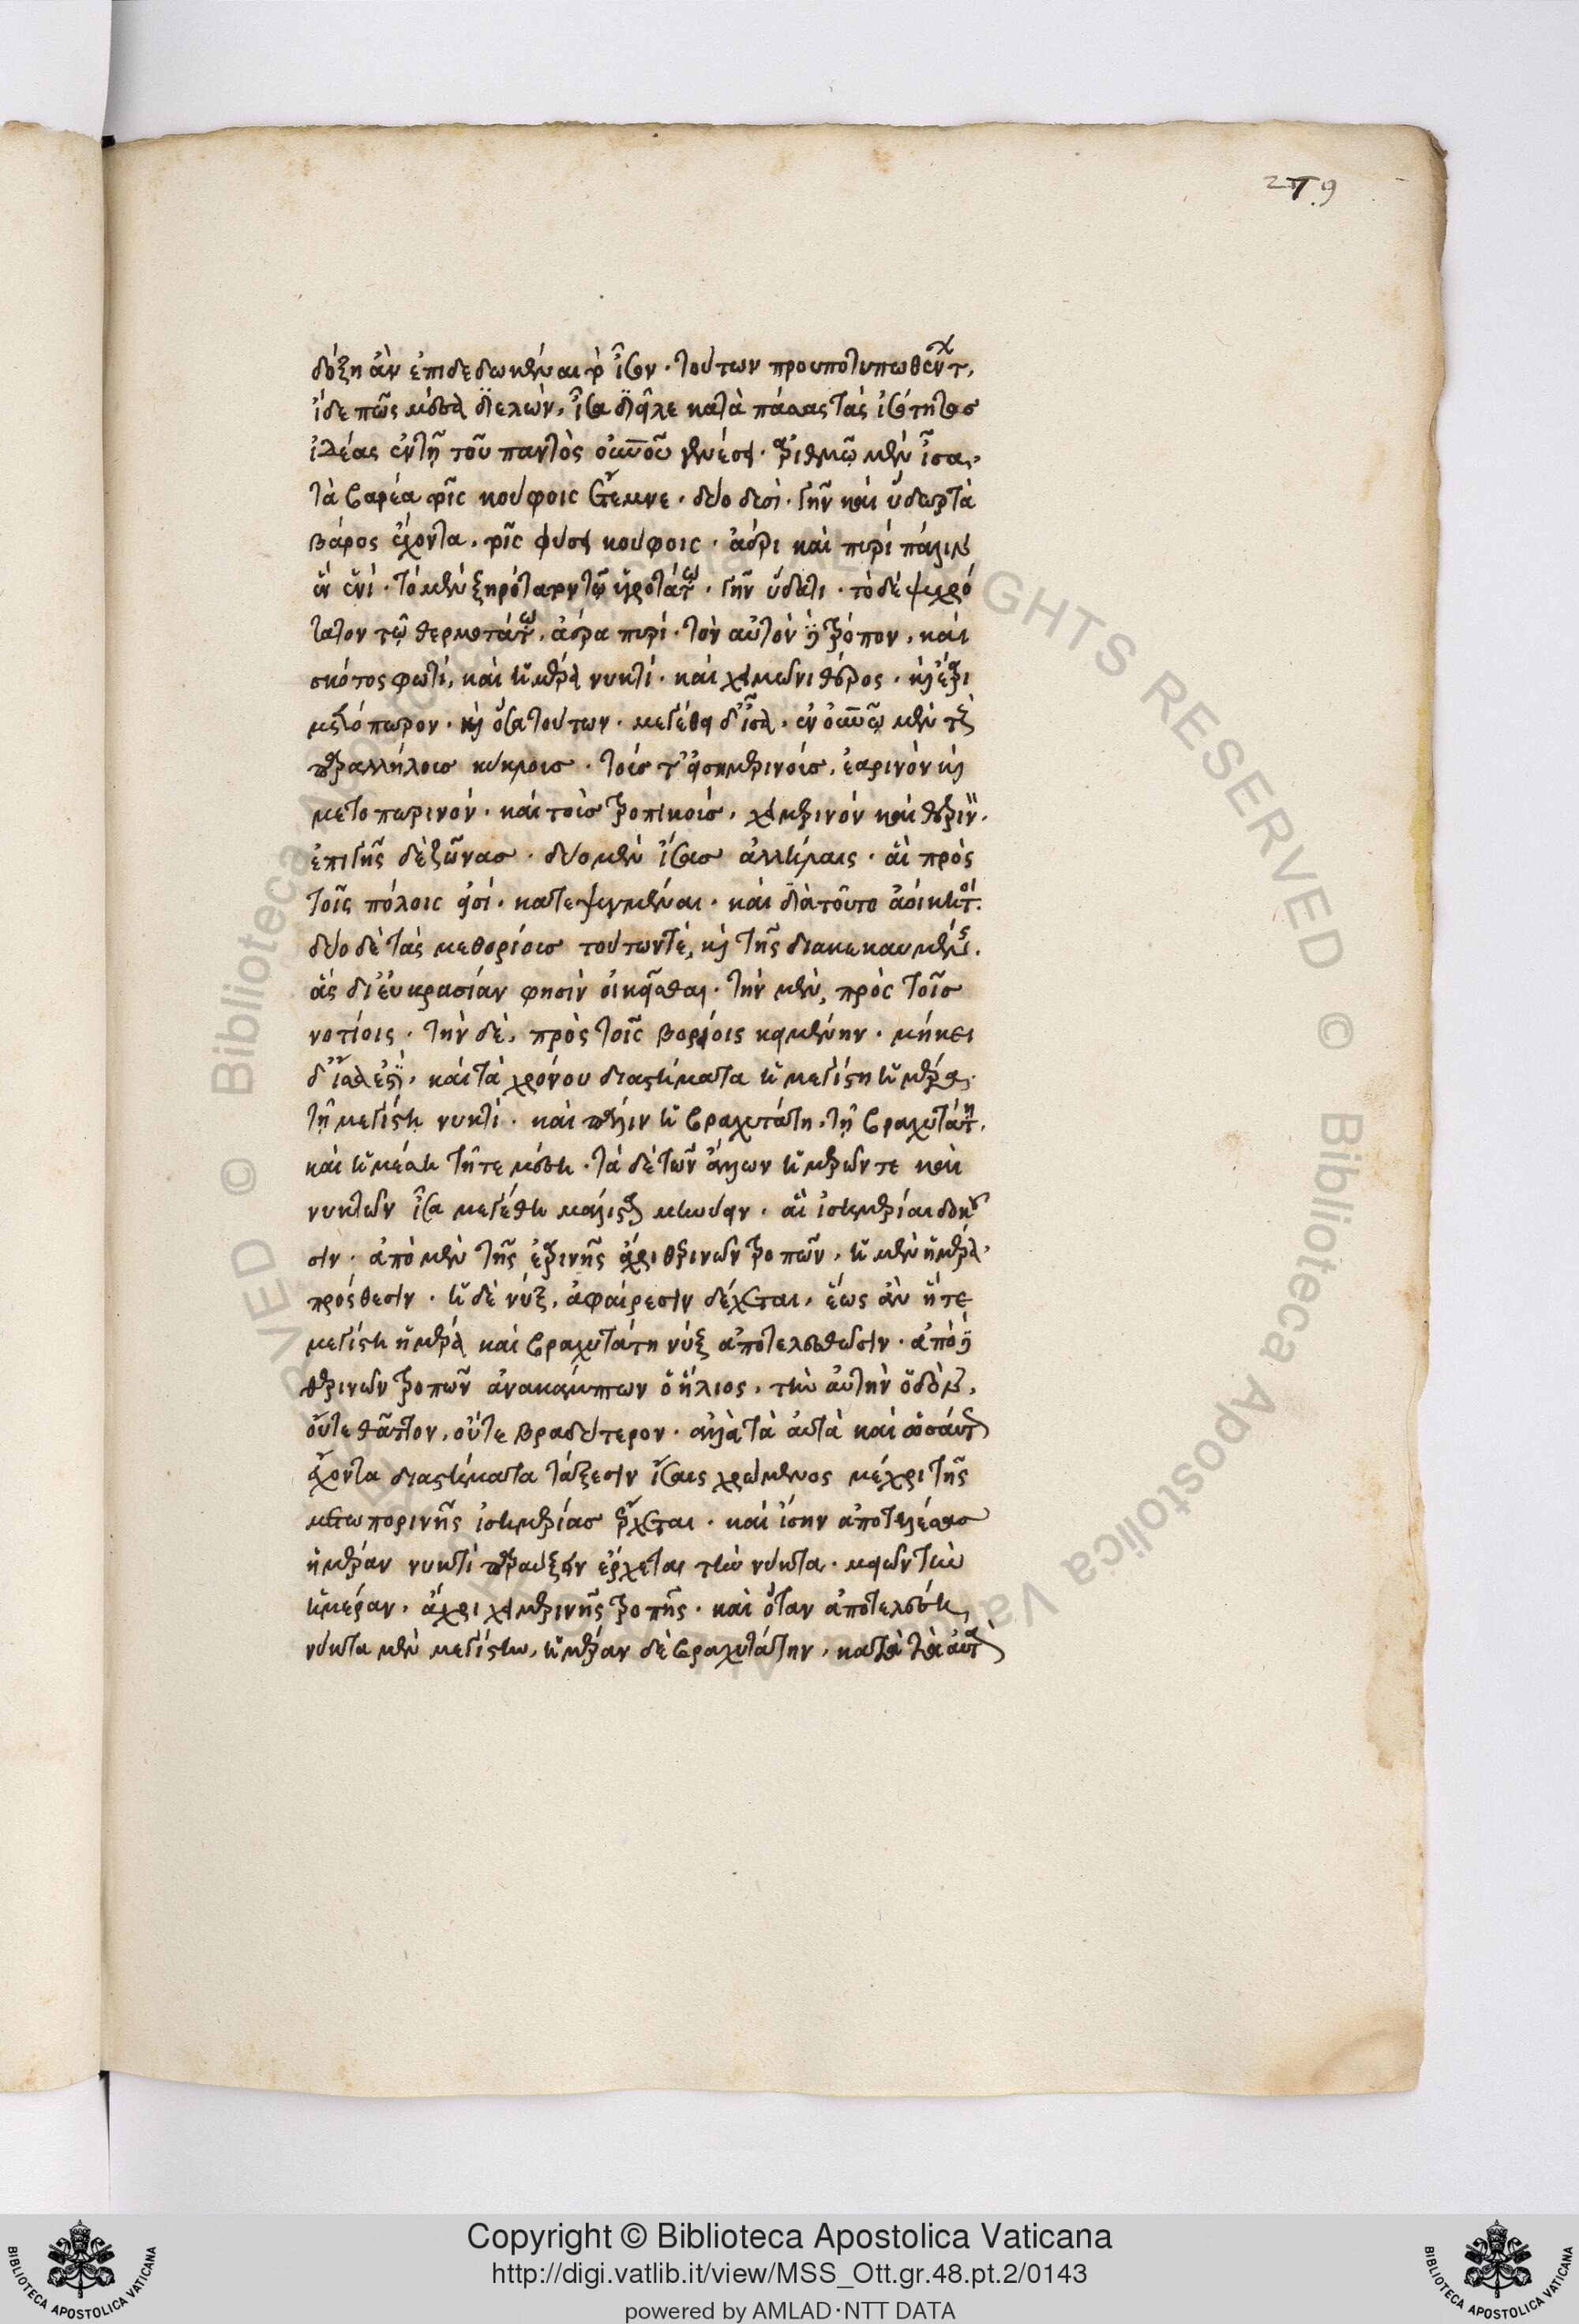 279
δόξη ἂν ἐπιδεδωκέναι πρὸς ἴσον. τούτων προυποτυπωθέντ,
ἴδε πῶς μέσα διελὼν, ἴσα διεῖλε κατὰ πάσας τὰς ἰσότητος
ἰδέας ἐν τῇ τοῦ παντὸς οὐνοῦ γενέσει. ἀριθμῷ μὲν ἴσα,
τὰ βαρέα τοῖς κούφοις ἔτεμνε. δύο δυσὶ. γῆν καὶ ὕδωρ τὰ
βάρος ἔχοντα, τοῖς φύσει κούφοις. ἀέρι καὶ πυρί πάλιν
ἓν ἑνί. τὸ μὲν ξηρότατον τῷ ὑγροτάτω. γῆν ὕδατι. τὸ δὲ ψυχρό
τατον τῷ θερμοτάτω, ἀέρα πυρί. τὸν αὐτὸν δὲ τρόπον, καὶ
σκότος φωτί, καὶ ἡμέρα νυκτί. καὶ χειμῶνι θέρος. καὶ ἔαρι
μετόπωρον. καὶ ὅσα τούτων. μεγέθει δ' ἴσα, ἐν οὐνῷ μὲν τοὺς
παραλλήλοισ κύκλοισ. τοῖσ τ' ἰσημερινοῖσ, ἐαρινὸν καὶ
μετοπωρινόν. καὶ τοῖσ τροπικοῖσ, χειμερινόν καὶ θερινὸν.
ἐπὶ γῆς δὲ ζῶνασ. δύο μὲν ἴσασ ἀλλήλαις. αἳ πρὸς
τοῖς πόλοις εἰσί. κατεψυγμέναι. καὶ διὰ τοῦτο ἀοίκητοι.
δύο δὲ τὰς μεθορίοισ τούτων τέ, καὶ τῆς διακεκαυμένης.
ἃς δι' εὐκρασίαν φησὶν οἰκεῖσθαι. τὴν μὲν, πρὸς τοῖσ
νοτίοις. τὴν δὲ, πρὸς τοῖς βορείοις κειμένην. μήκει
δ' ἴσα ἐστὶ, καὶ τὰ χρόνου διαστήματα ἡ μεγίστη ἡμέρα,
τῇ μεγίστη νυκτί. καὶ πάλιν ἡ βραχυτάτη, τῇ βραχυτάτη,
καὶ ἡ μέση τῆ τε μέση. τὰ δὲ τῶν ἄλλων ἡμερῶν τε καὶ
νυκτῶν ἴσα μεγέθη μάλιστα μηνύειν. αἳ ἰσημερίαι δοκοῦ
σιν. ἀπὸ μὲν τῆς ἐαρινῆς ἄχρι θερινῶν τροπῶν, ἡ μὲν ἡμέρα,
πρόσθεσιν. ἡ δὲ νὺξ, ἀφαίρεσιν δέχεται, ἕως ἂν ἥ τε
μεγίστη ἡμέρα καὶ βραχυτάτη νὺξ ἀποτελεσθῶσιν. ἀπὸ δὲ
θερινῶν τροπῶν ἀνακάμπτων ὁ ἥλιος, τὴν αὐτὴν ὁδὸν,
οὔτε θᾶττον, οὔτε βραδύτερον. ἀλλὰ τὰ αὐτὰ καὶ ὡσαύτως
ἔχοντα διαστήματα τάξεσιν ἴσαις χρώμενος μέχρι τῆς
μετωπορινῆς ἰσημερίασ ἔρχεται. καὶ ἴσην ἀποτελέσασ
ἡμέραν νυκτὶ παραύξειν ἔρχεται τὴν νύκτα. μειῶν τὴν
ἡμέραν, ἄχρι χειμερινῆς τροπῆς. καὶ ὅταν ἀποτελέση,
νύκτα μὲν μεγίστην, ἡμέραν δὲ βραχυτάτην, κατὰ τὰ αὐτὰ
Copyright © Biblioteca Apostolica Vaticana
http://digi.vatlib.it/view/MSS_Ott.gr.48.pt.2/0143
powered by AMLAD·NTT DATA